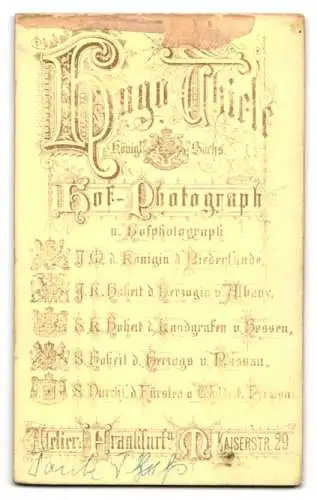 Hugo Thiele
Königl. Sachs.
Hof-Photograph
u. Hofphotograph
J. M. d. Königin d. Niederlande,
J. K. Hoheit d. Herzogin v. Albany,
S. K. Hoheit d. Landgrafen v. Hessen,
S. Hoheit d. Herzogs v. Nassau,
S. Durchl. d. Fürsten
Atelier: Frankfurt a/M. KAISERSTR. 29